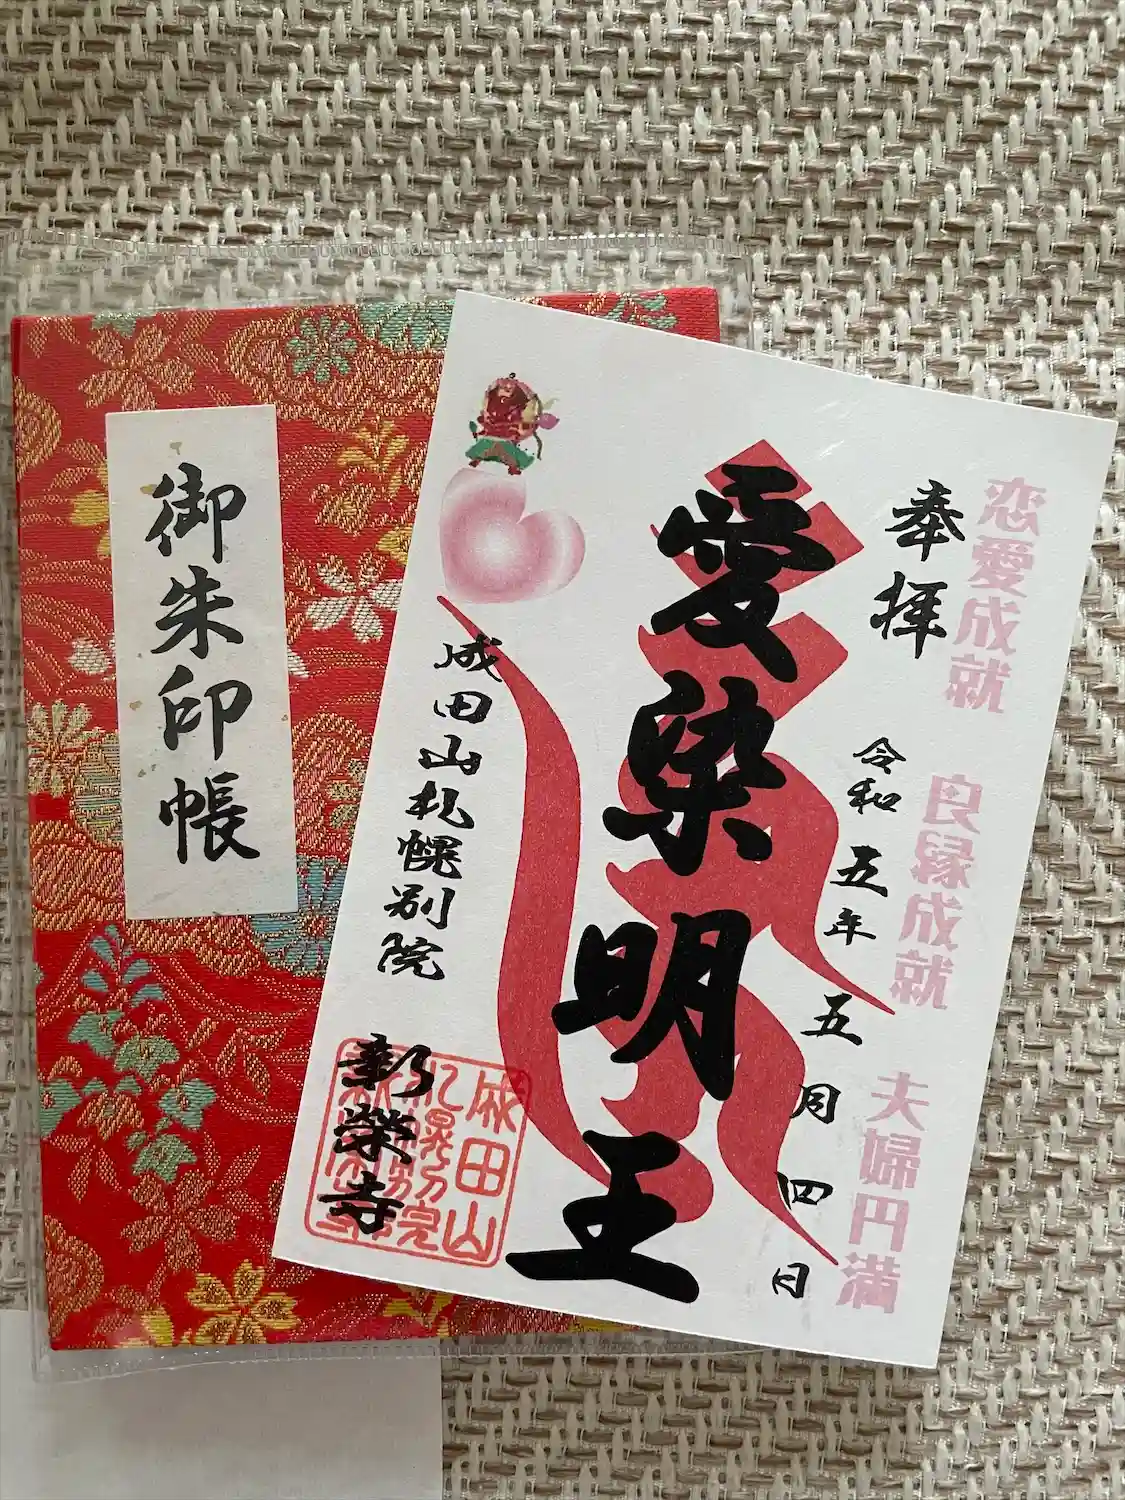 御朱印帳
恋愛成就 良縁成就 夫婦円満
奉拝 令和五年五月四日
愛染明王
成田山札幌別院
新榮寺
成田山
札幌別院